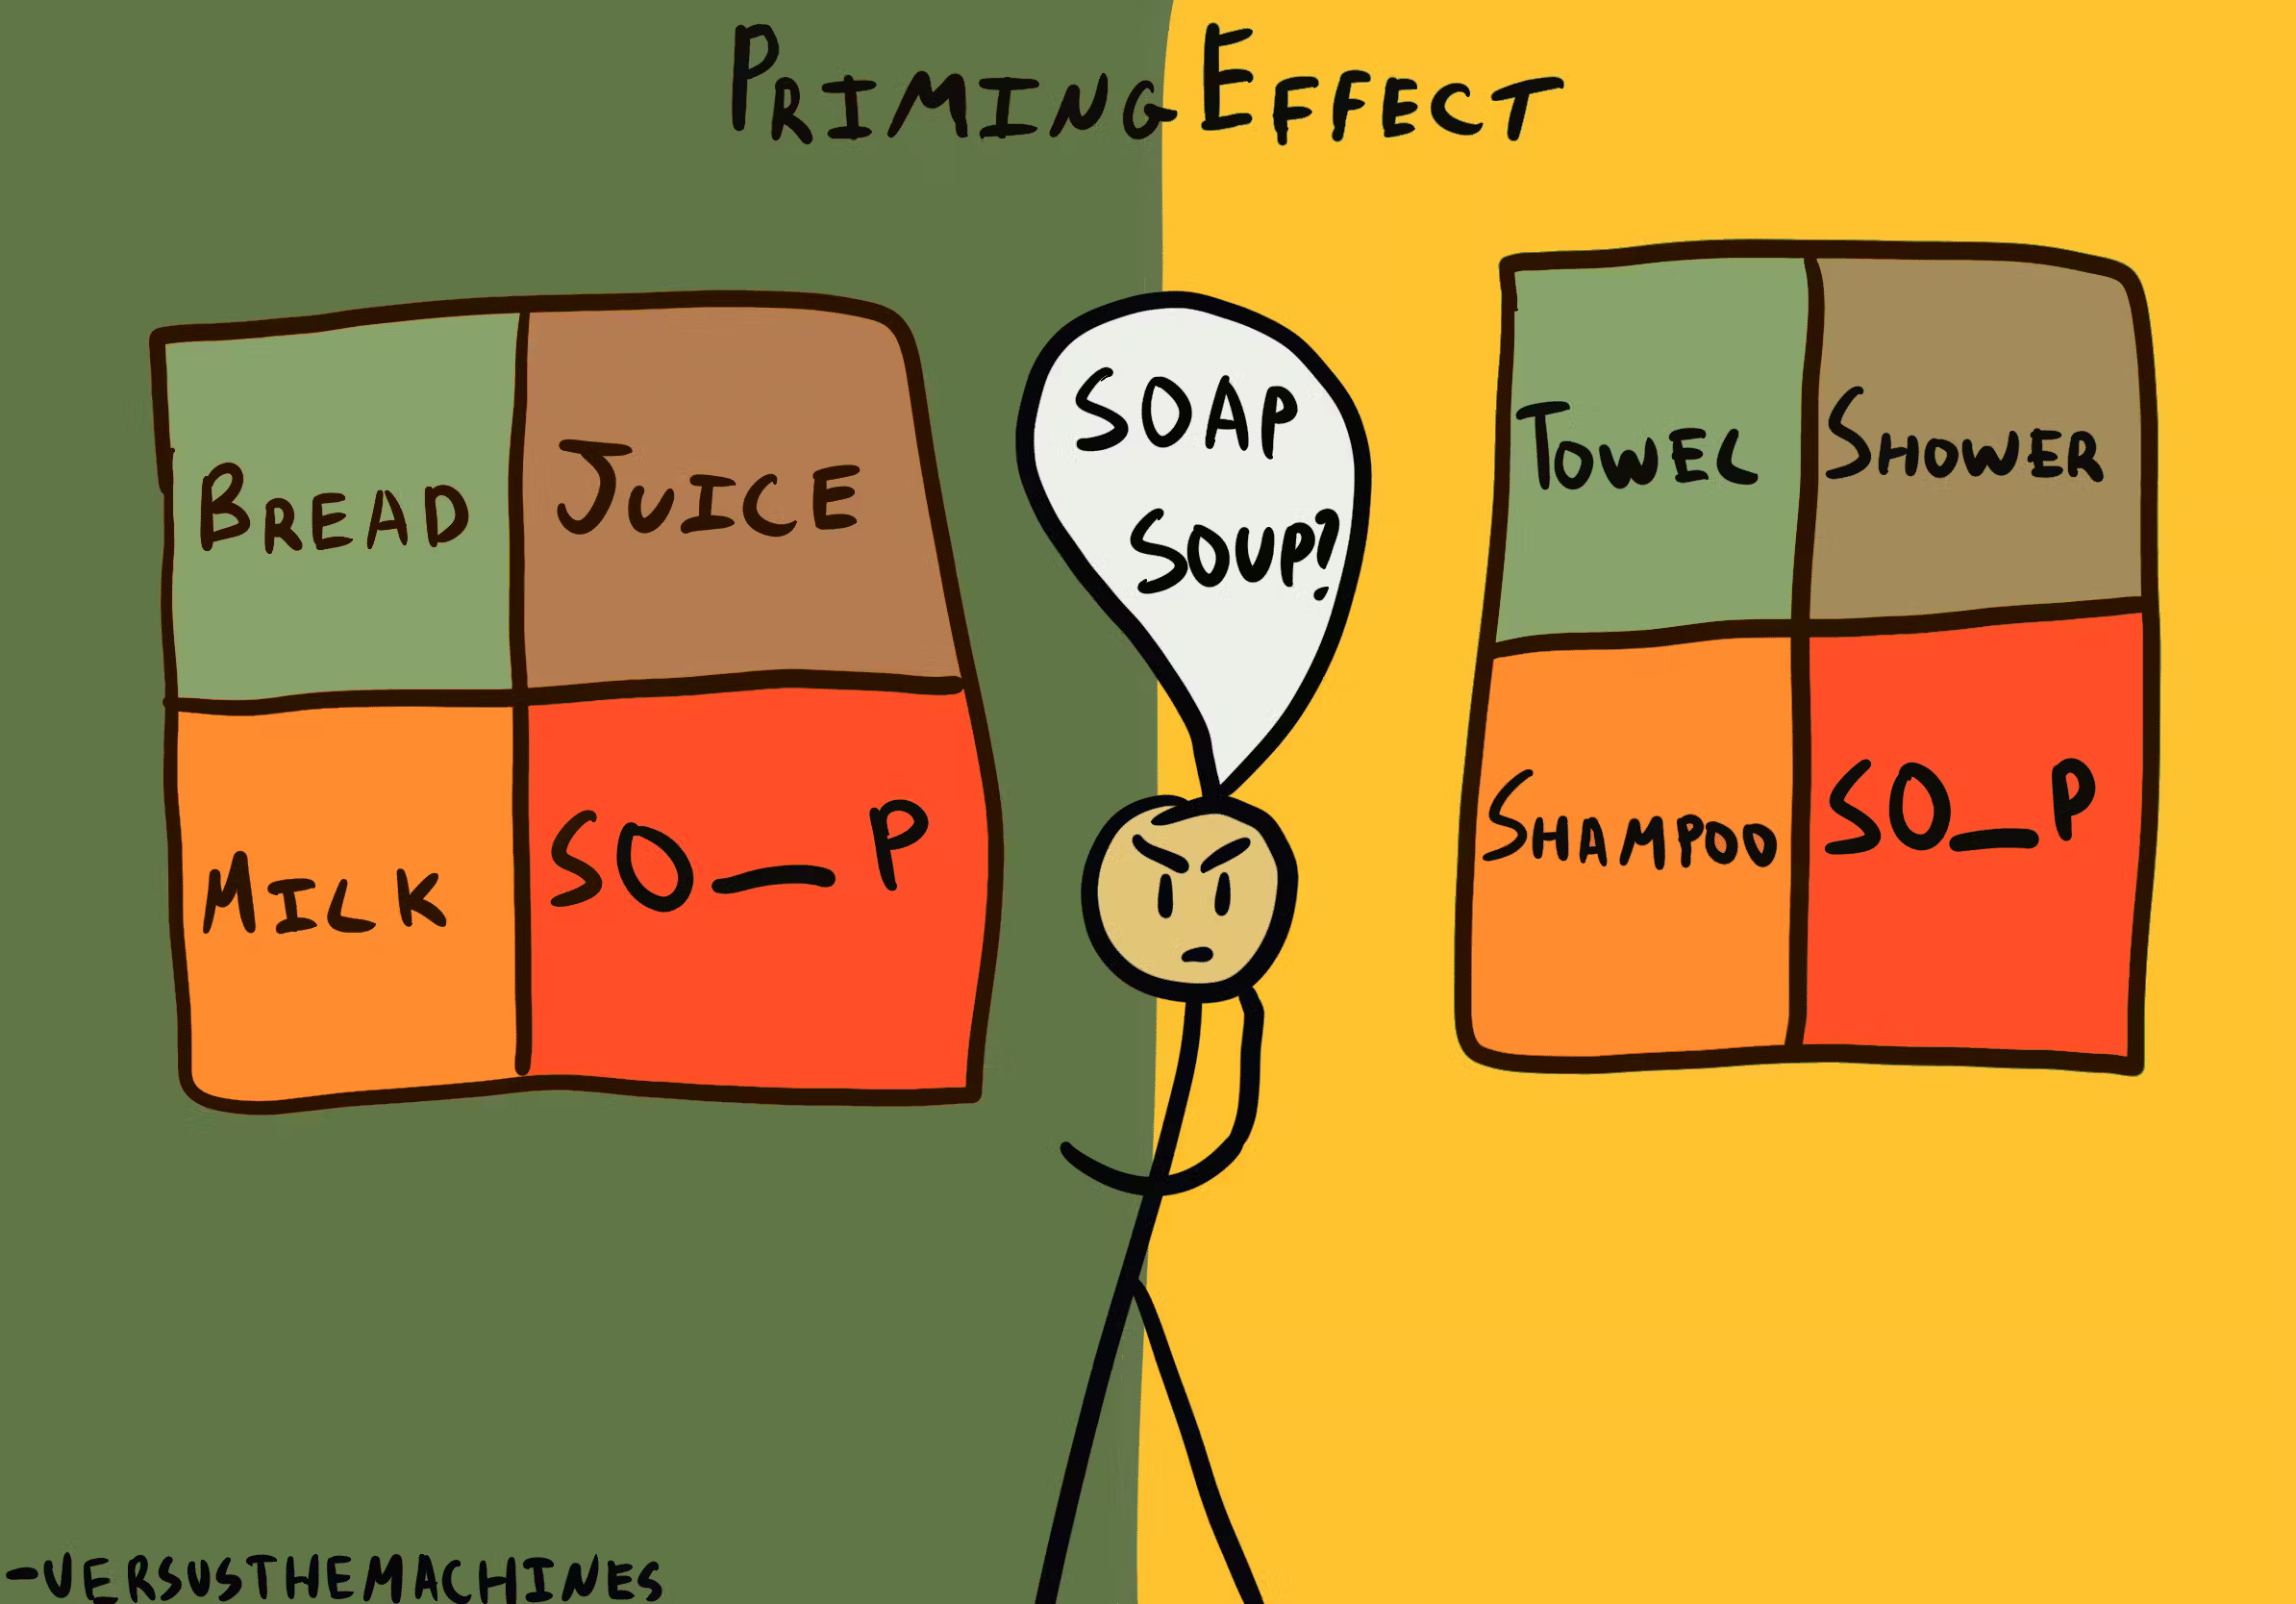 PRIMING EFFECT
BREAD
JUICE
MILK
SO_P
SOAP
SOUP?
TOWEL
SHOWER
SHAMPOO
SO_P
-VERSUSTHEMACHINES